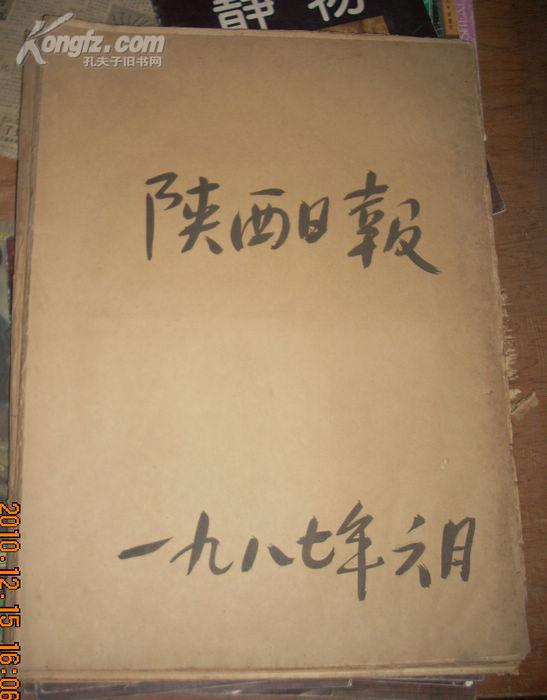 Kongfz.com
孔夫子旧书网
静物
陕西日報
一九八七年六月
2010.12.15 16:06